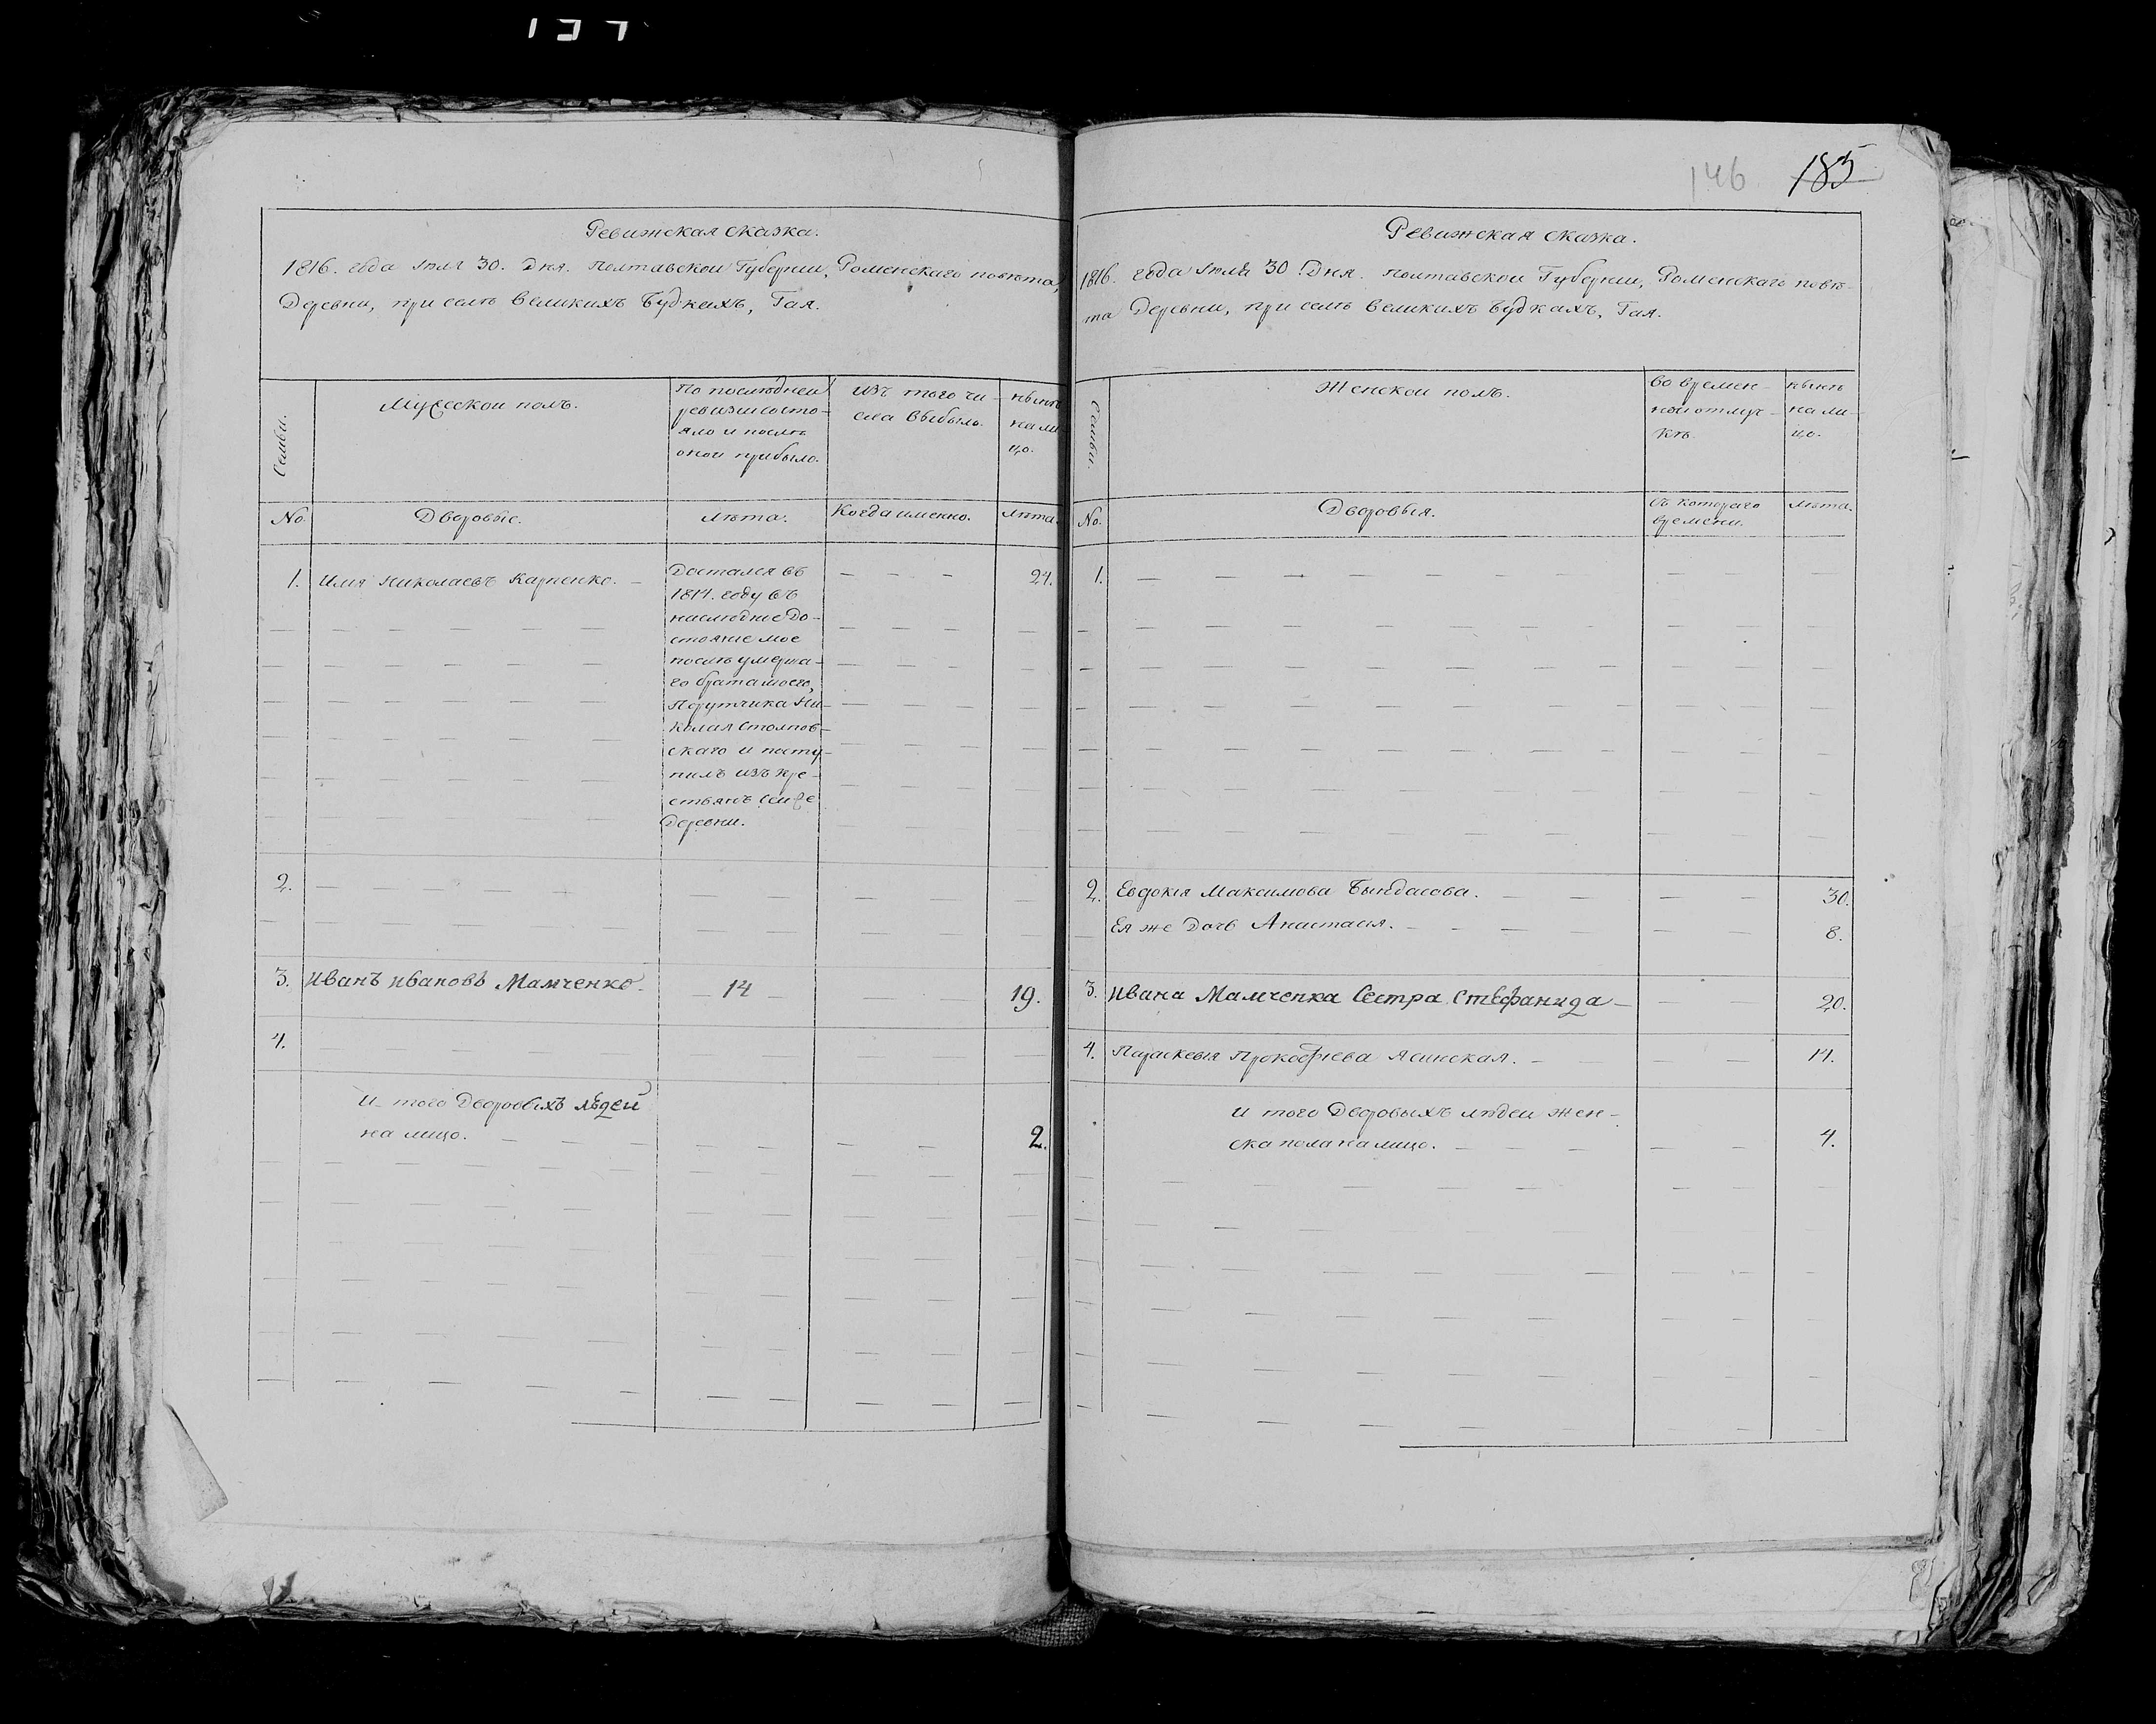 146 185
Ревижская сказка.
1816. года Июля 30. Дня. Полтавской Губернии, Роменскаго повѣта,
Деревни, при селѣ Великихъ Будкахъ, Гая.
Семьи.
Мужеской полъ.
По последней
ревизии состо-
яло и послѣ
оной прибыло.
изъ того чи-
сла выбыло.
нынѣ
на ли-
цо.
No.
Дворовые.
лѣта.
Когда именно.
лѣта.
1. Илія Николаевъ Карпенко. — 24.
Достался въ
1814. году въ
наследное До-
стояние мое
послѣ умерша-
го брата моего,
Порутчика Ни-
колая Столпов-
скаго и посту-
пилъ изъ кре-
стьянъ сей же
Деревни.
2.
3. Иванъ Ивановъ Мамченко. — 14 — 19.
4.
И того Дворовыхъ людей
на лицо. 2.
Ревижская сказка.
1816. года Июля 30 Дня. Полтавской Губернии, Роменскаго повѣ-
та Деревни, при селѣ Великихъ Будкахъ, Гая.
Семьи.
Женской полъ.
Во времен-
ной отлуч-
кѣ.
нынѣ
на ли-
цо.
No.
Дворовыя.
съ котораго
времени.
лѣта.
1.
2. Евдокия Максимова Бындасова. 30.
Ея же Дочь Анастасия. 8.
3. Ивана Мамченка Сестра Стефанида — 20.
4. Параскевия Прокофиева Ясинская. — 14.
И того Дворовыхъ людей жен-
ска пола на лицо. 4.